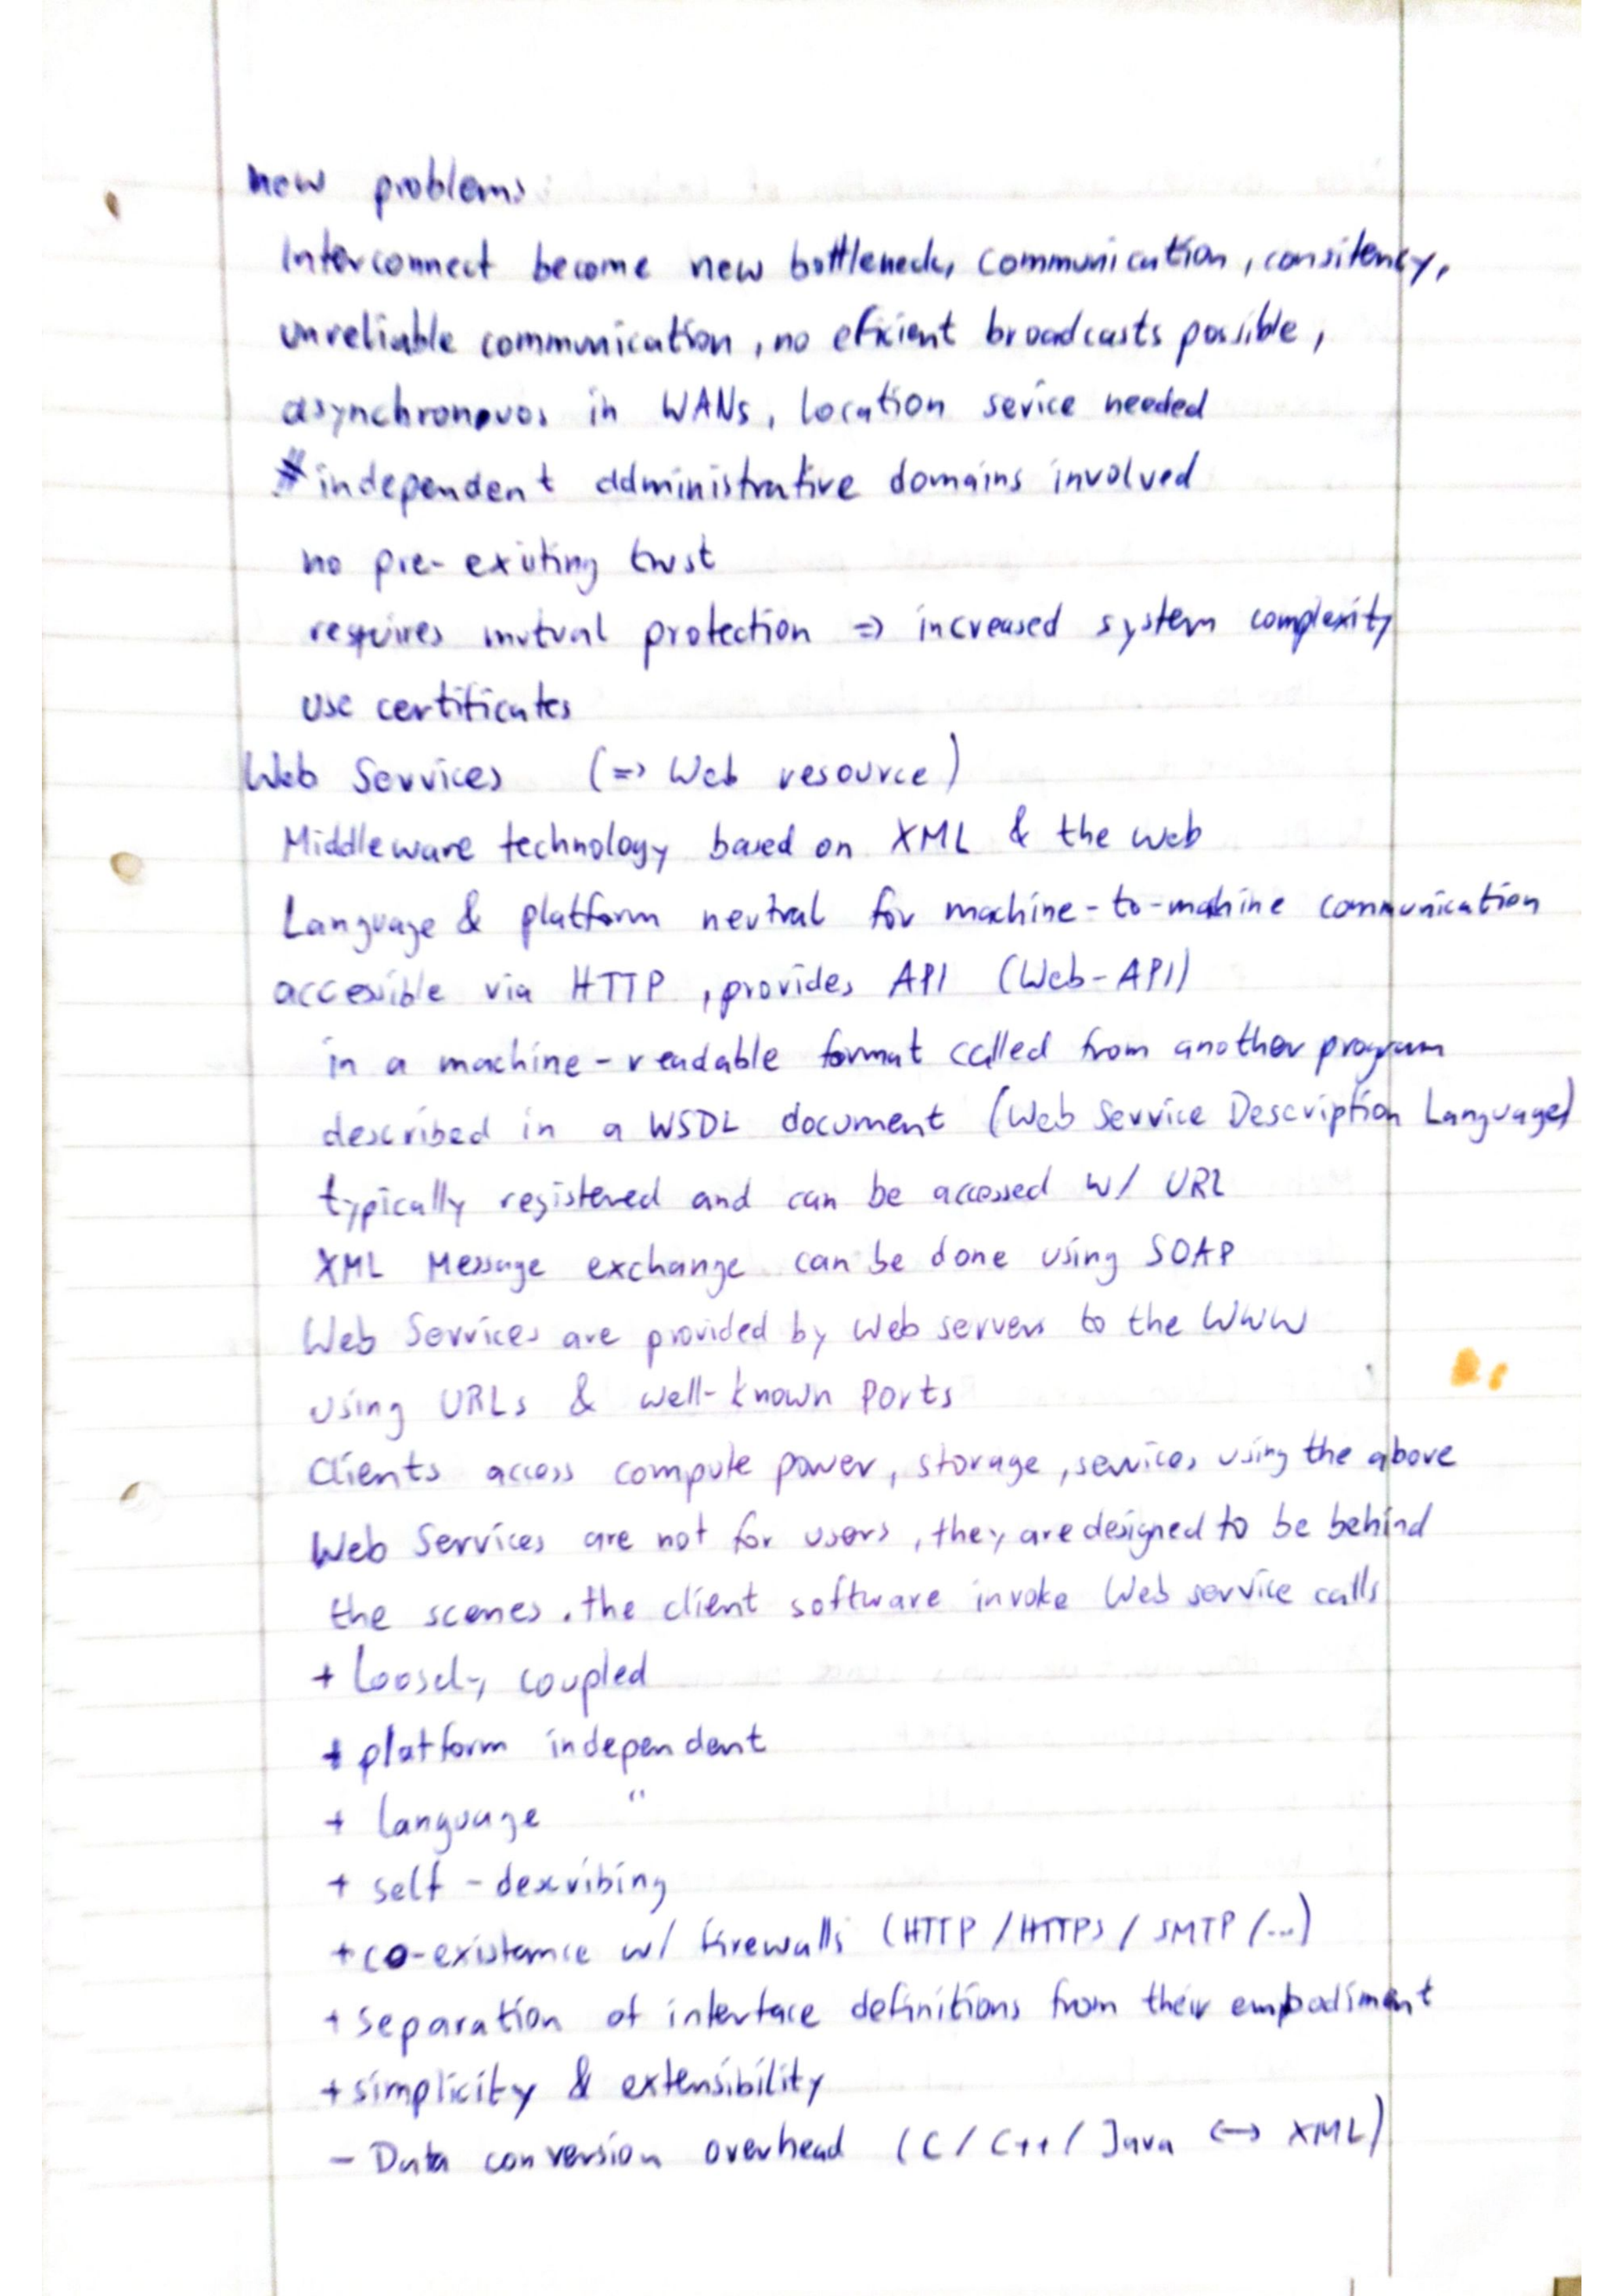 new problems
Interconnect become new bottleneck, communication, consitency,
unreliable communication, no eficient broadcasts possible,
asynchronouos in WANs, location sevice needed
independent administrative domains involved
no pre-existing trust
requires mutual protection => increased system complexity
use certificates
Web Services (=> Web resource)
Middleware technology based on XML & the web
Language & platform neutral for machine-to-mahine communication
accessible via HTTP, provides API (Web-API)
in a machine-readable format called from another program
described in a WSDL document (Web Service Description Language)
typically registered and can be accessed w/ URL
XML Message exchange can be done using SOAP
Web Services are provided by Web servers to the WWW
using URLs & well-known ports
Clients access compute power, storage, services using the above
Web Services are not for users, they are designed to be behind
the scenes. the client software invoke Web service calls
+ Loosely coupled
+ platform independent
+ language "
+ self-describing
+ co-existence w/ firewalls (HTTP / HTTPS / SMTP /...)
+ separation of interface definitions from their embodiment
+ simplicity & extensibility
- Data conversion overhead (C / C++ / Java <-> XML)